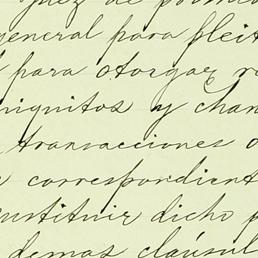 juez de primera
general para pleit
para otorgar
niquitos y chan
transacciones o
correspondient
sustituir dicho p
demas cláusul